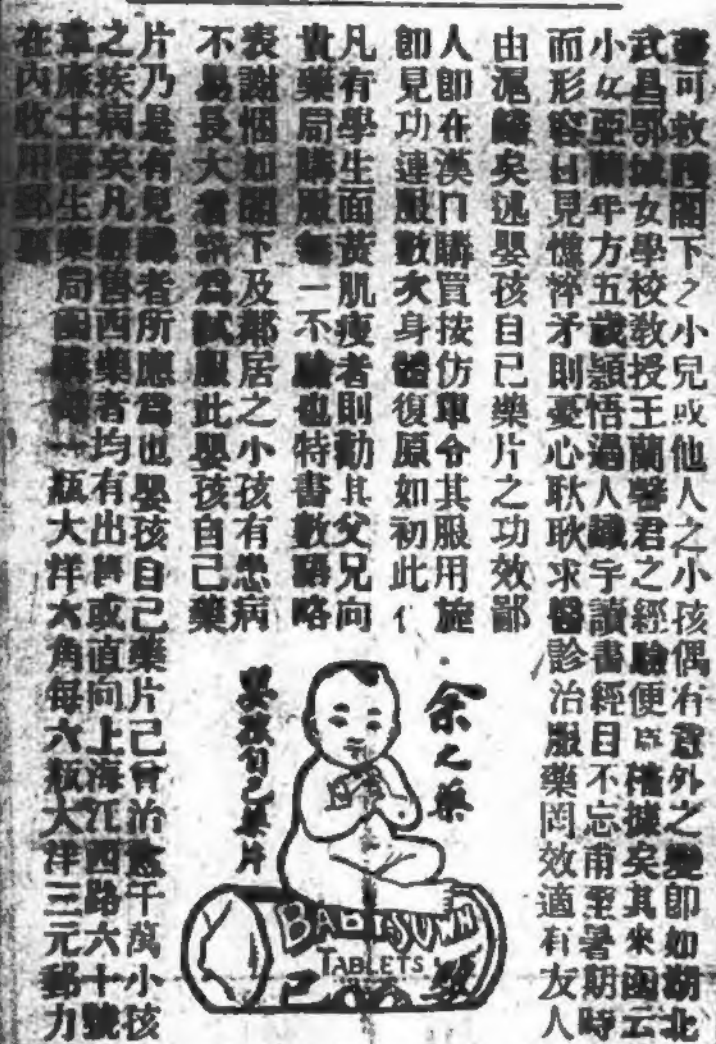 可救閣下之小兒或他人之小孩偶有意外之變卽如湖北
武昌鄂城女學校敎授王蘭馨君之經驗便爲確據矣其來函云
小女亞蘭年方五歲穎悟過人識字讀書經目不忘甫至暑期時
而形容日見憔悴矛則憂心耿耿求醫診治服藥罔效適有友人
由滬歸矣述嬰孩自己藥片之功效鄙
人卽在漢口購買按仿單令其服用施
卽見功連服數次身體復原如初此
凡有學生面黃肌瘦者則勸其父兄向
貴藥局購服無一不驗也特書數語略
表謝悃如閣下及鄰居之小孩有患病
不易長大者當爲試服此嬰孩自己藥
片乃是有見識者所應爲也嬰孩自己藥片已曾治愈千萬小孩
之疾病矣凡經售西藥者均有出售或直向上海江西路六十號
韋廉士醫生藥局函購每一瓶大洋六角每六瓶大洋三元郵力
在內收用郵票
余之藥
嬰孩自己藥片
TABLETS